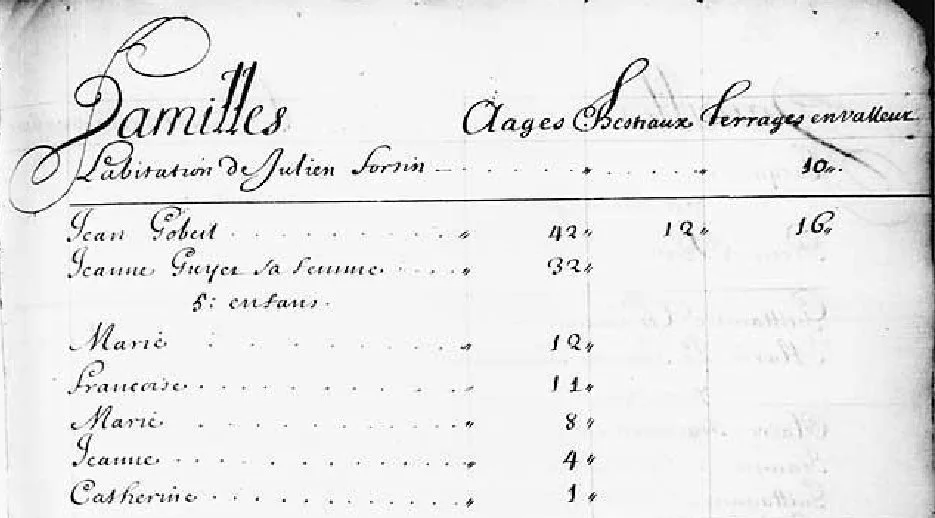 Familles Aages Bestiaux Terrages en valleur
L'abitation de Julien Forsin — . . . . . „ . . . . . „ 10„.
Jean Gobeil . . . . . . . . . „ 42„ 12„ 16„
Jeanne Guyet sa femme . . . . „ 32„
5: enfans.
Marie . . . . . . . . „ 12„
Francoise . . . . . . . . . . „ 11„
Marie . . . . . . . . . „ 8„
Jeanne . . . . . . . . . . . „ 4„
Catherine . . . . . . . . . . „ 1„